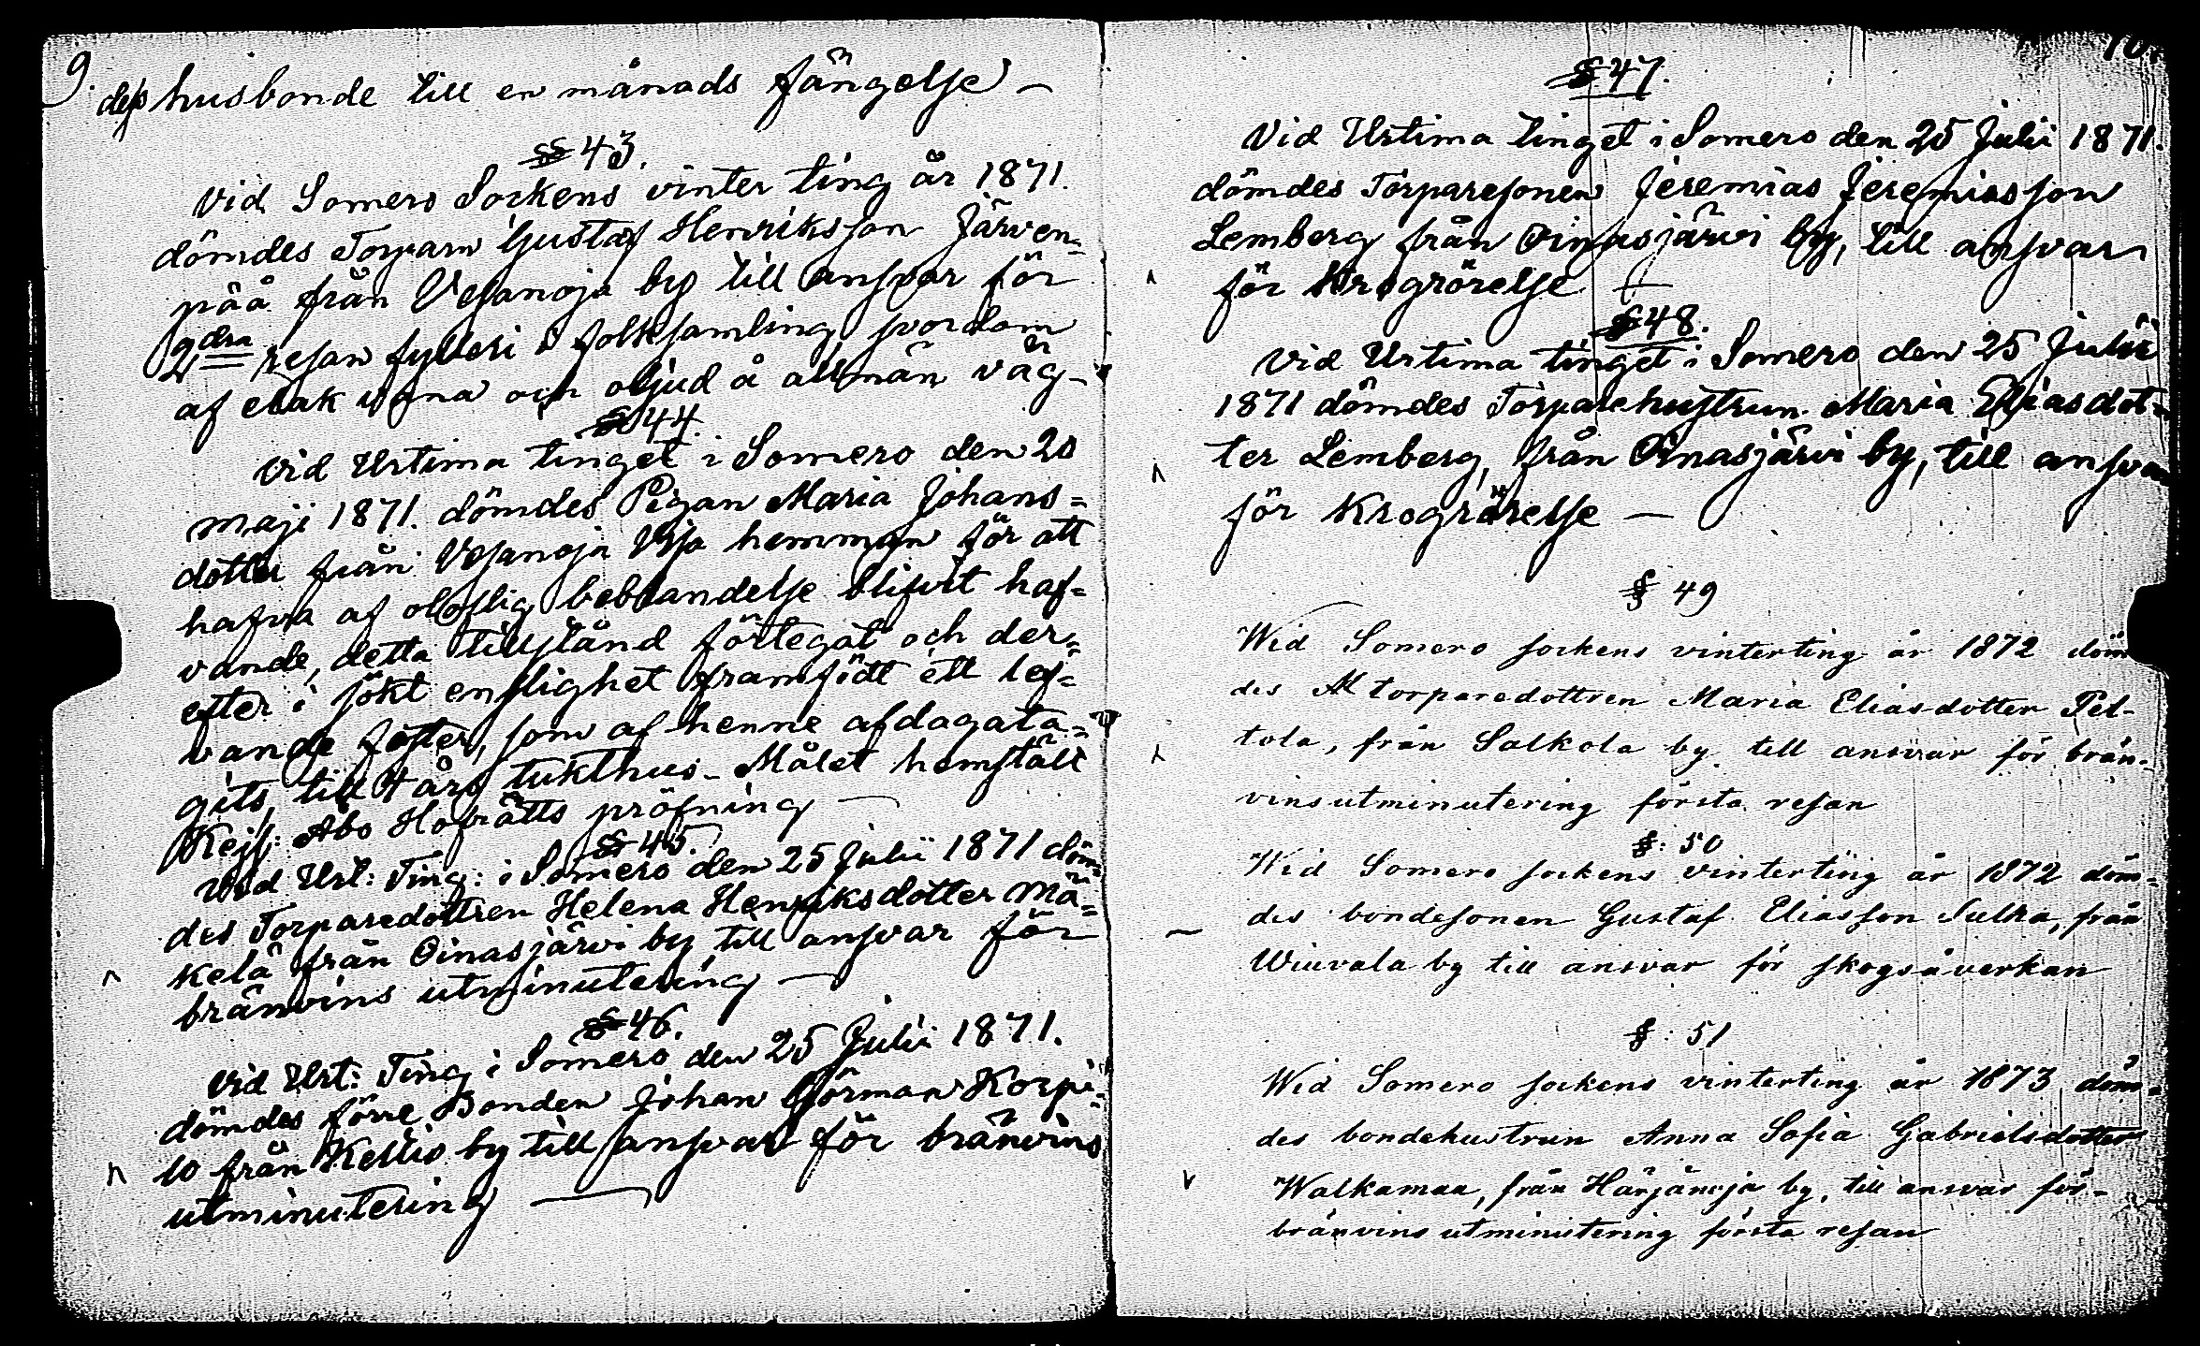 9.
dess husbonde till en månads fängelse –
§ 43.
Vid Somero Sockens vinter ting år 1871.
dömdes Torparn Gustaf Henriksson Järven=
pää från Vesanoja by till answar för
2dra resan fylleri i folksamling svordom
af elak vana och oljud å allmän väg –
§ 44.
Vid Urtima tinget i Somero den 20
maji 1871. dömdes Pigan Maria Johans=
dotter från Vesanoja hemman för att
hafva af oloflig beblandelse blifvit haf=
vande, detta tillstånd förtegat och der=
efter i sökt enslighet framfödt ett lef=
vande foster, som af henne afdagata=
gits, till 4 års tukthus – Målet hemstält
Kejs: Åbo Hofrätts pröfning —
§ 45.
Vid Urt: Ting: i Somero den 25 Julii 1871 döm=
des Torparedottren Helena Henriksdotter Mä=
kelä från Oinasjärvi by till ansvar för
bränvins utminutering —
§ 46.
Vid Urt: Ting i Somero den 25 Julii 1871.
dömdes förre Bonden Johan Görman Korpi=
lo från Kellio by till ansvar för bränvins
utminutering —
10.
§ 47.
Vid Urtima tinget i Somero den 25 Julii 1871.
dömdes Torparesonen Jeremias Jeremiasson
Lemberg från Oinasjärvi by, till ansvar
för Krogrörelse —
§ 48.
Vid Urtima tinget i Somero den 25 Julii
1871 dömdes Torparehustrun Maria Eliasdot=
ter Lemberg, från Oinasjärvi by, till ansvar
för Krogrörelse —
§ 49
Wid Somero sockens vinterting år 1872 döm
des torparedottren Maria Eliasdotter Pel-
tola, från Salkola by till ansvar för brän-
vinsutminutering första resan
§: 50
Wid Somero sockens vinterting år 1872 döm=
des bondesonen Gustaf Eliasson Sulka, från
Wiuvala by till ansvar för skogsåverkan
§: 51
Wid Somero sockens vinterting år 1873 döm=
des bondehustrun Anna Sofia Gabrielsdotter
Walkamaa, från Härjänoja by, till ansvar för
bränvins utminutering första resan